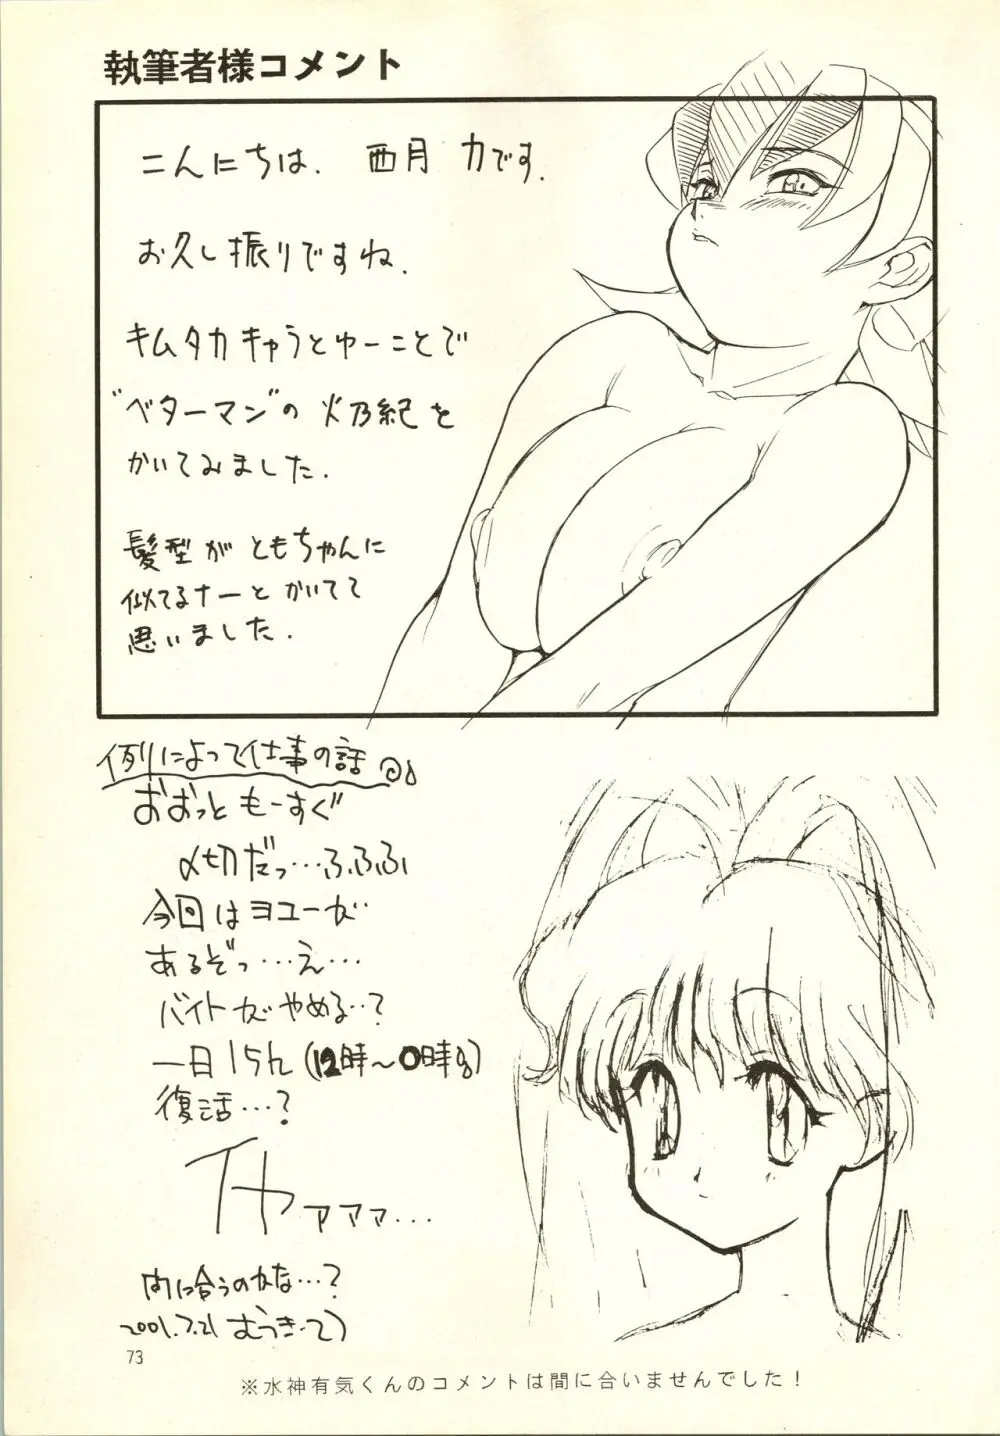 執筆者様コメント
こんにちは. 西月 力です.
お久し振りですね.
キムタカキャラとゆーことで
"ベターマン"の 火乃紀を
かいてみました.
髪型が ともちゃんに
似てるナーと かいてて
思いました.
例によって仕事の話
おおっと もーすぐ
〆切だっ…ふふふ
今回は ヨユーが
あるぞっ…え…
バイトがやめる…?
一日15h(12時～0時
復活…?
イヤァァァ...
間に合うのかな…?
2001.7.21
73
※水神有気くんのコメントは間に合いませんでした!